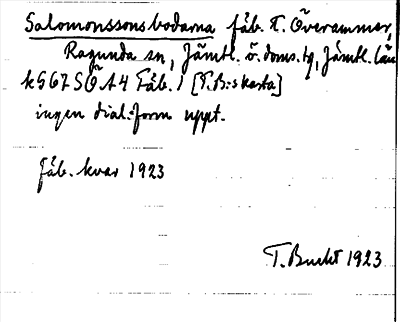 Salomonssonsbodarna fäb. t. Överammer,
Ragunda sn, Jämtl. ö. doms. tg, Jämtl. län
k567SÖA4 Fäb. 1 [T.B:s karta]
ingen dial.-form uppt.
fäb. kvar 1923
T. Bucht 1923